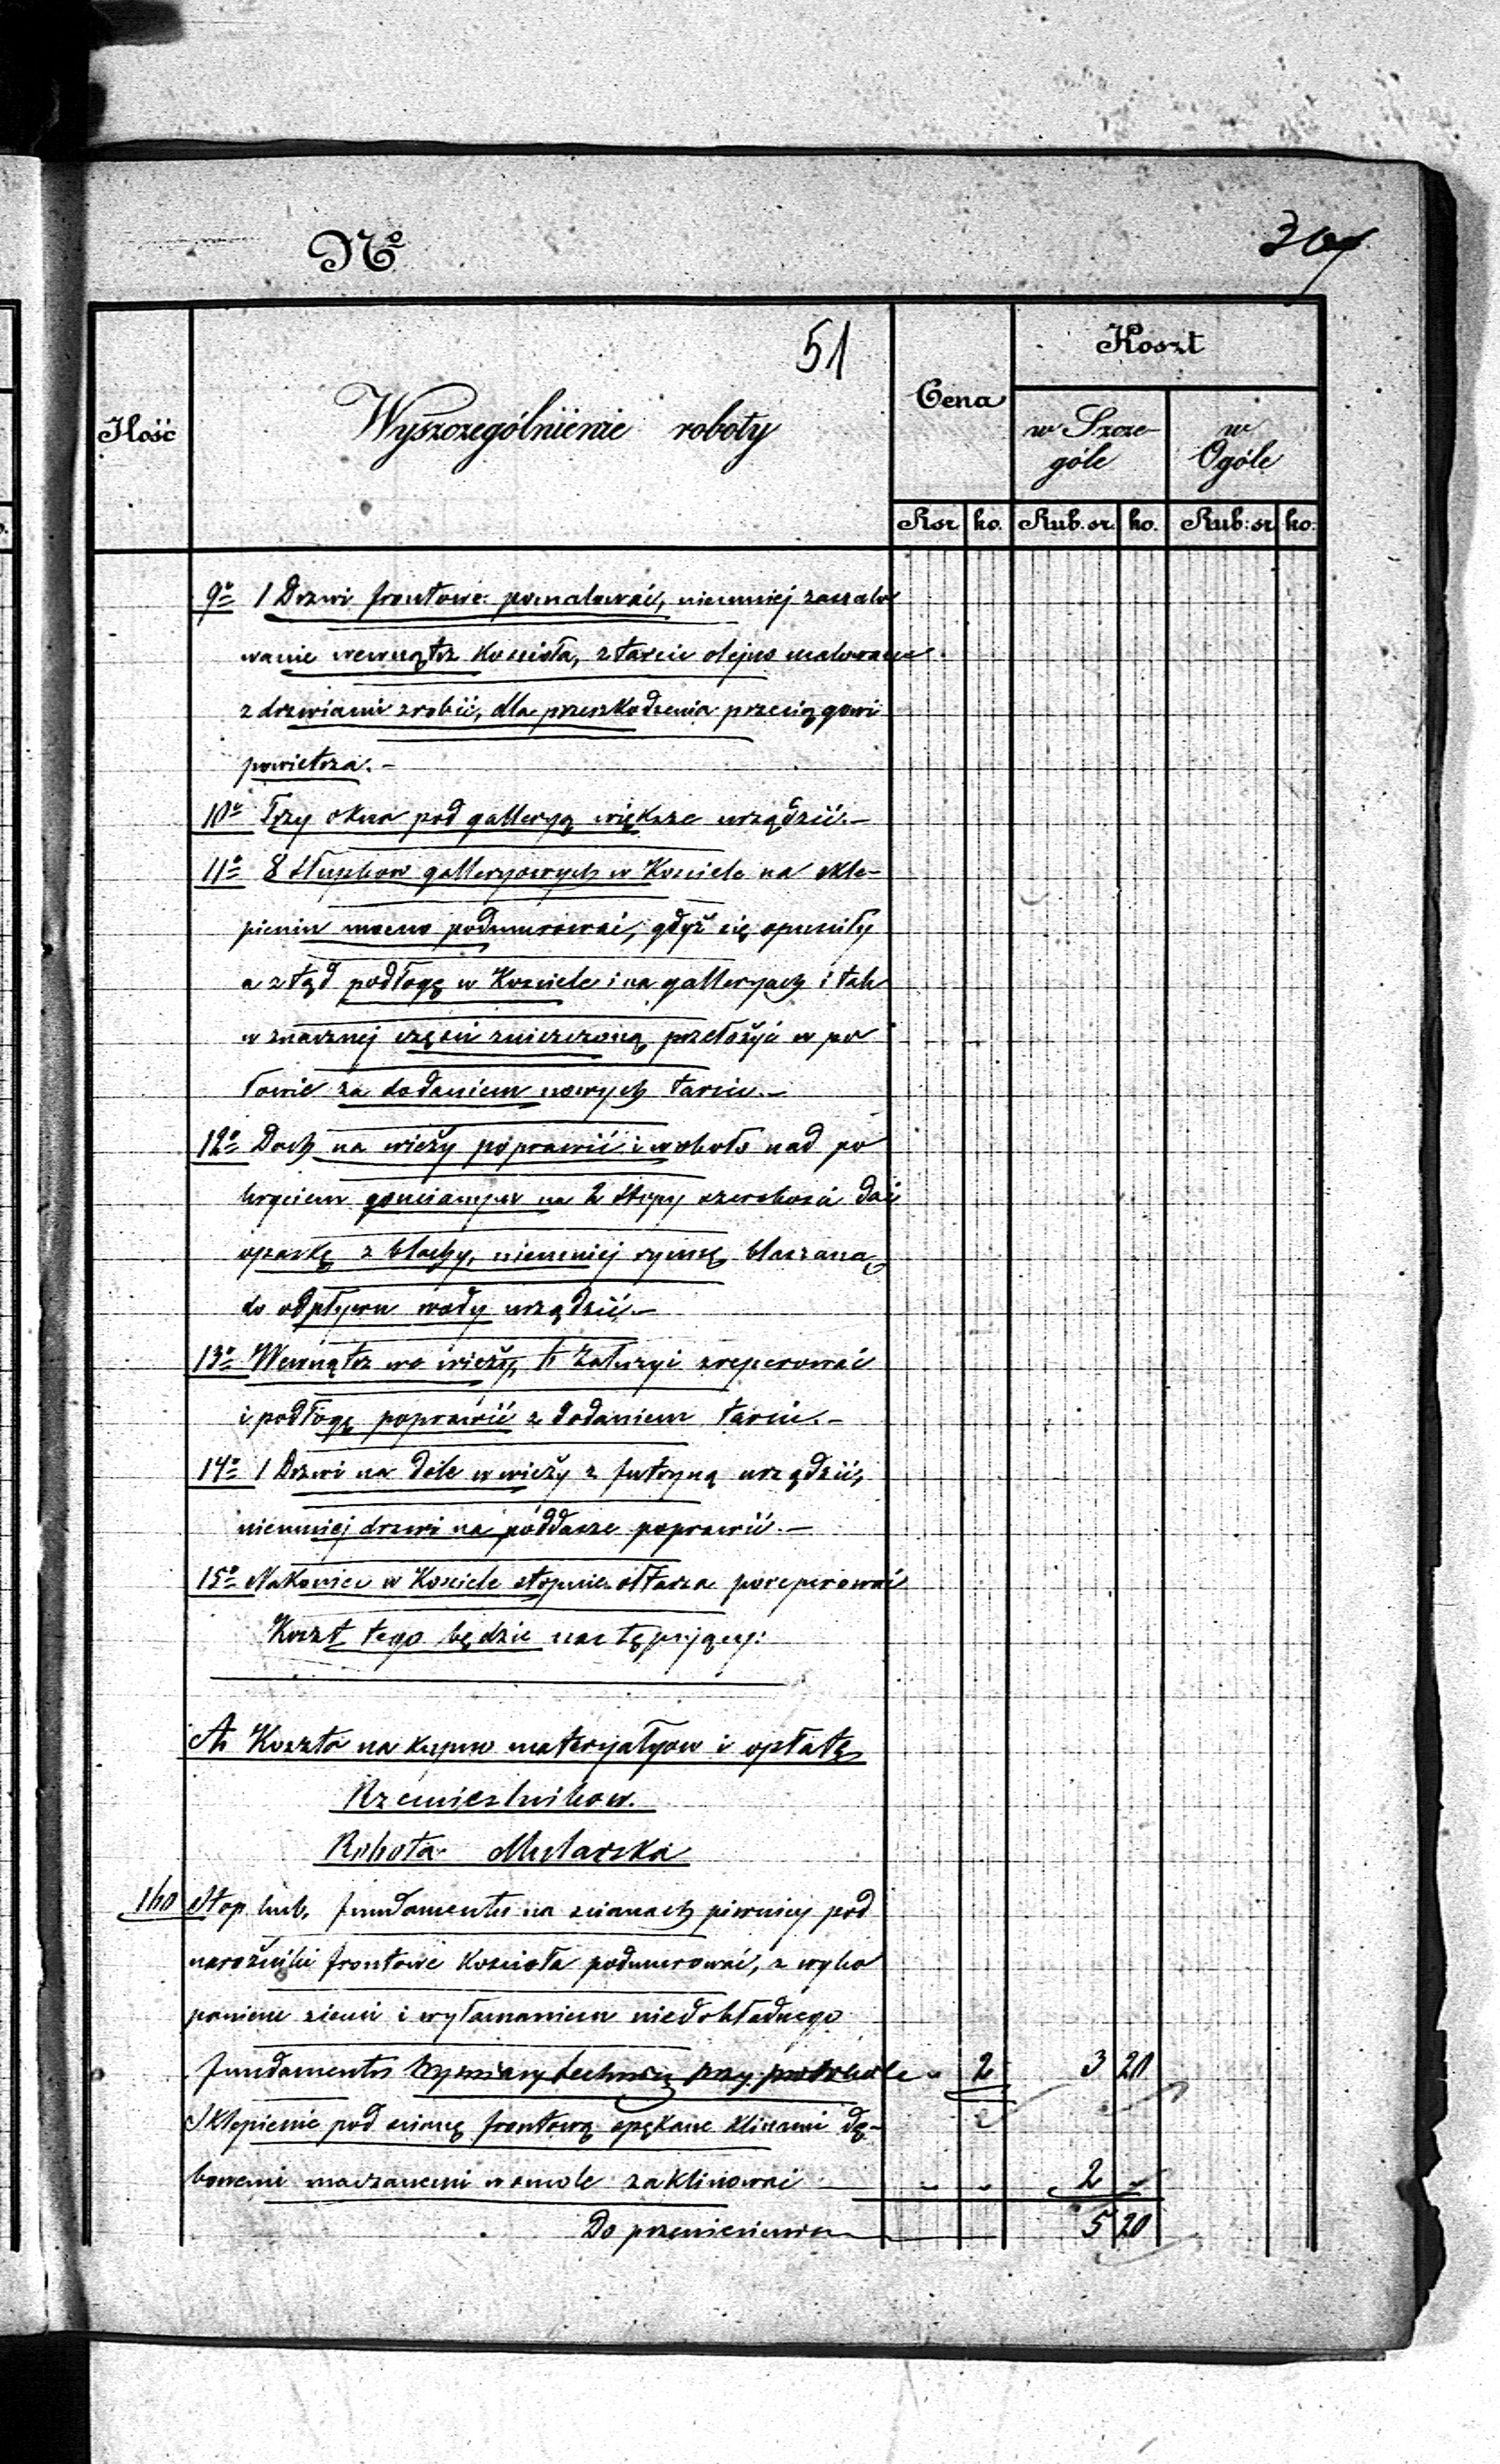 No
307
51
Ilość
Wyszczególnienie roboty
Cena
Koszt
w Szcze-
góle
w
Ogóle
Rsr ko. Rub. sr. ko. Rub: sr ko:
9o 1 Drzwi frontowe pomalować, niemniej zaszalo
wanie wewnątrz Kościoła, z tarcic olejno malowane
z drzwiami zrobić, dla przeszkodzenia przeciągowi
powietrza.-
10o Trzy okna pod galleryą większe urządzić.-
11o 8 słupków galleryowych w Kościele na skle-
pieniu mocno podmurować, gdyż się opuściły
a ztąd podłogę w Kościele i na galleryach i tak
w znacznej części zniszczoną przełożyć w po
łowie za dodaniem nowych tarcic.-
12o Dach na wieży poprawić i wokoło nad po
kryciem gonciamper na 2 stopy szerokości dać
opaskę z blachy, niemniej rynnę blaszaną
do odpływu wody urządzić.-
13o Wewnątrz we wieży, żaluzyi zreperować
i podłogę poprawić z dodaniem tarcic.-
14o 1 Drzwi na dole w wieży z futryną urządzić,
niemniej drzwi na poddasze poprawić.-
15o Nakoniec w Kościele stopnie ołtarza poreperować
Koszt tego będzie następujący:
A Koszta na kupno materyałyow i opłatę
Rzemieslnikow.
Robota Mularska
160 Stop kub. fundamentu na scianach piwnicy pod
narożniki frontowe Kościoła podmurować, z wyko
paniem ziemi i wyłamaniem niedokładnego
fundamentu " 2 3 20
Sklepienie pod scianę frontową spękane klinami dę-
bowemi maczanemi w smole zaklinować " " 2 "
Do przeniesienia 5 20